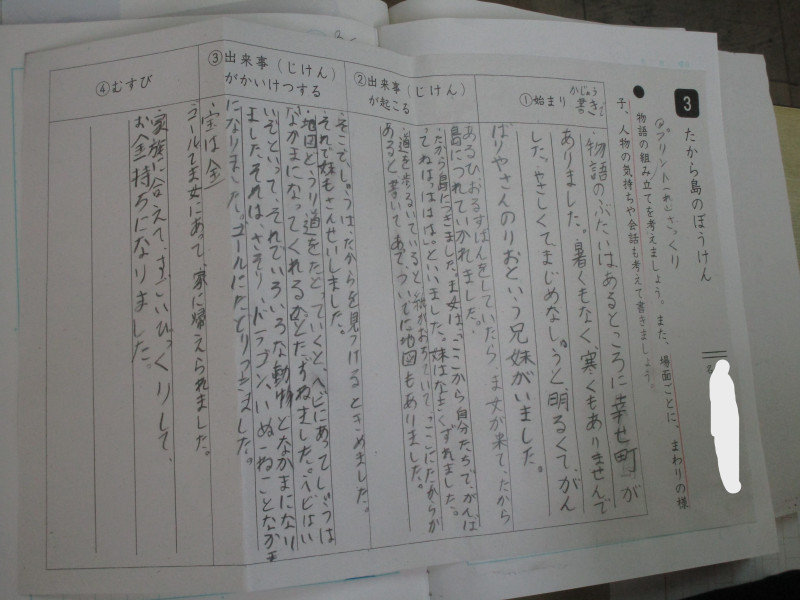 3
たから島のぼうけん
プリント(れ)ざっくり
物語の組み立てを考えましょう。また、場面ごとに、まわりの様
子、人物の気持ちや会話も考えて書きましょう。
①始まり
かじょう
書き
物語のぶたいはあるところに幸せ町が
ありました。暑くもなく、寒くもありませんで
した。やさしくてまじめなしょうと明るくてがん
ばりやさんのりおという兄妹がいました。
②出来事(じけん)
が起こる
あるひおるすばんをしていたら、ま女が来て、たから
島につれていかれました。
たから島につきました。ま女は、「ここから自分たちで、がんば
てねはっはは。」といいました。妹はなきくずれました。
道を歩るいていると紙がおちていて、ここにたからが
あると書いてあってついでに地図もありました。
③出来事(じけん)
がかいけつする
そこで、しょうは、たからを見つけるときめました。
それで妹もさんせいしました。
地図どうり道をたどっていくと、ヘビにあってしょうは
なかまになってくれるかとたずねました。ヘビはい
いぞといって、それでいろいろな動物となかまになり
ました。それは、さそり、ドラゴン、いぬ、ねことなかま
になりました。ゴールにたどりつきました。
宝は金
ゴールでま女にあて、家に帰えられました。
④むすび
家族に合えて、すごいびっくりして、
お金持ちになりました。